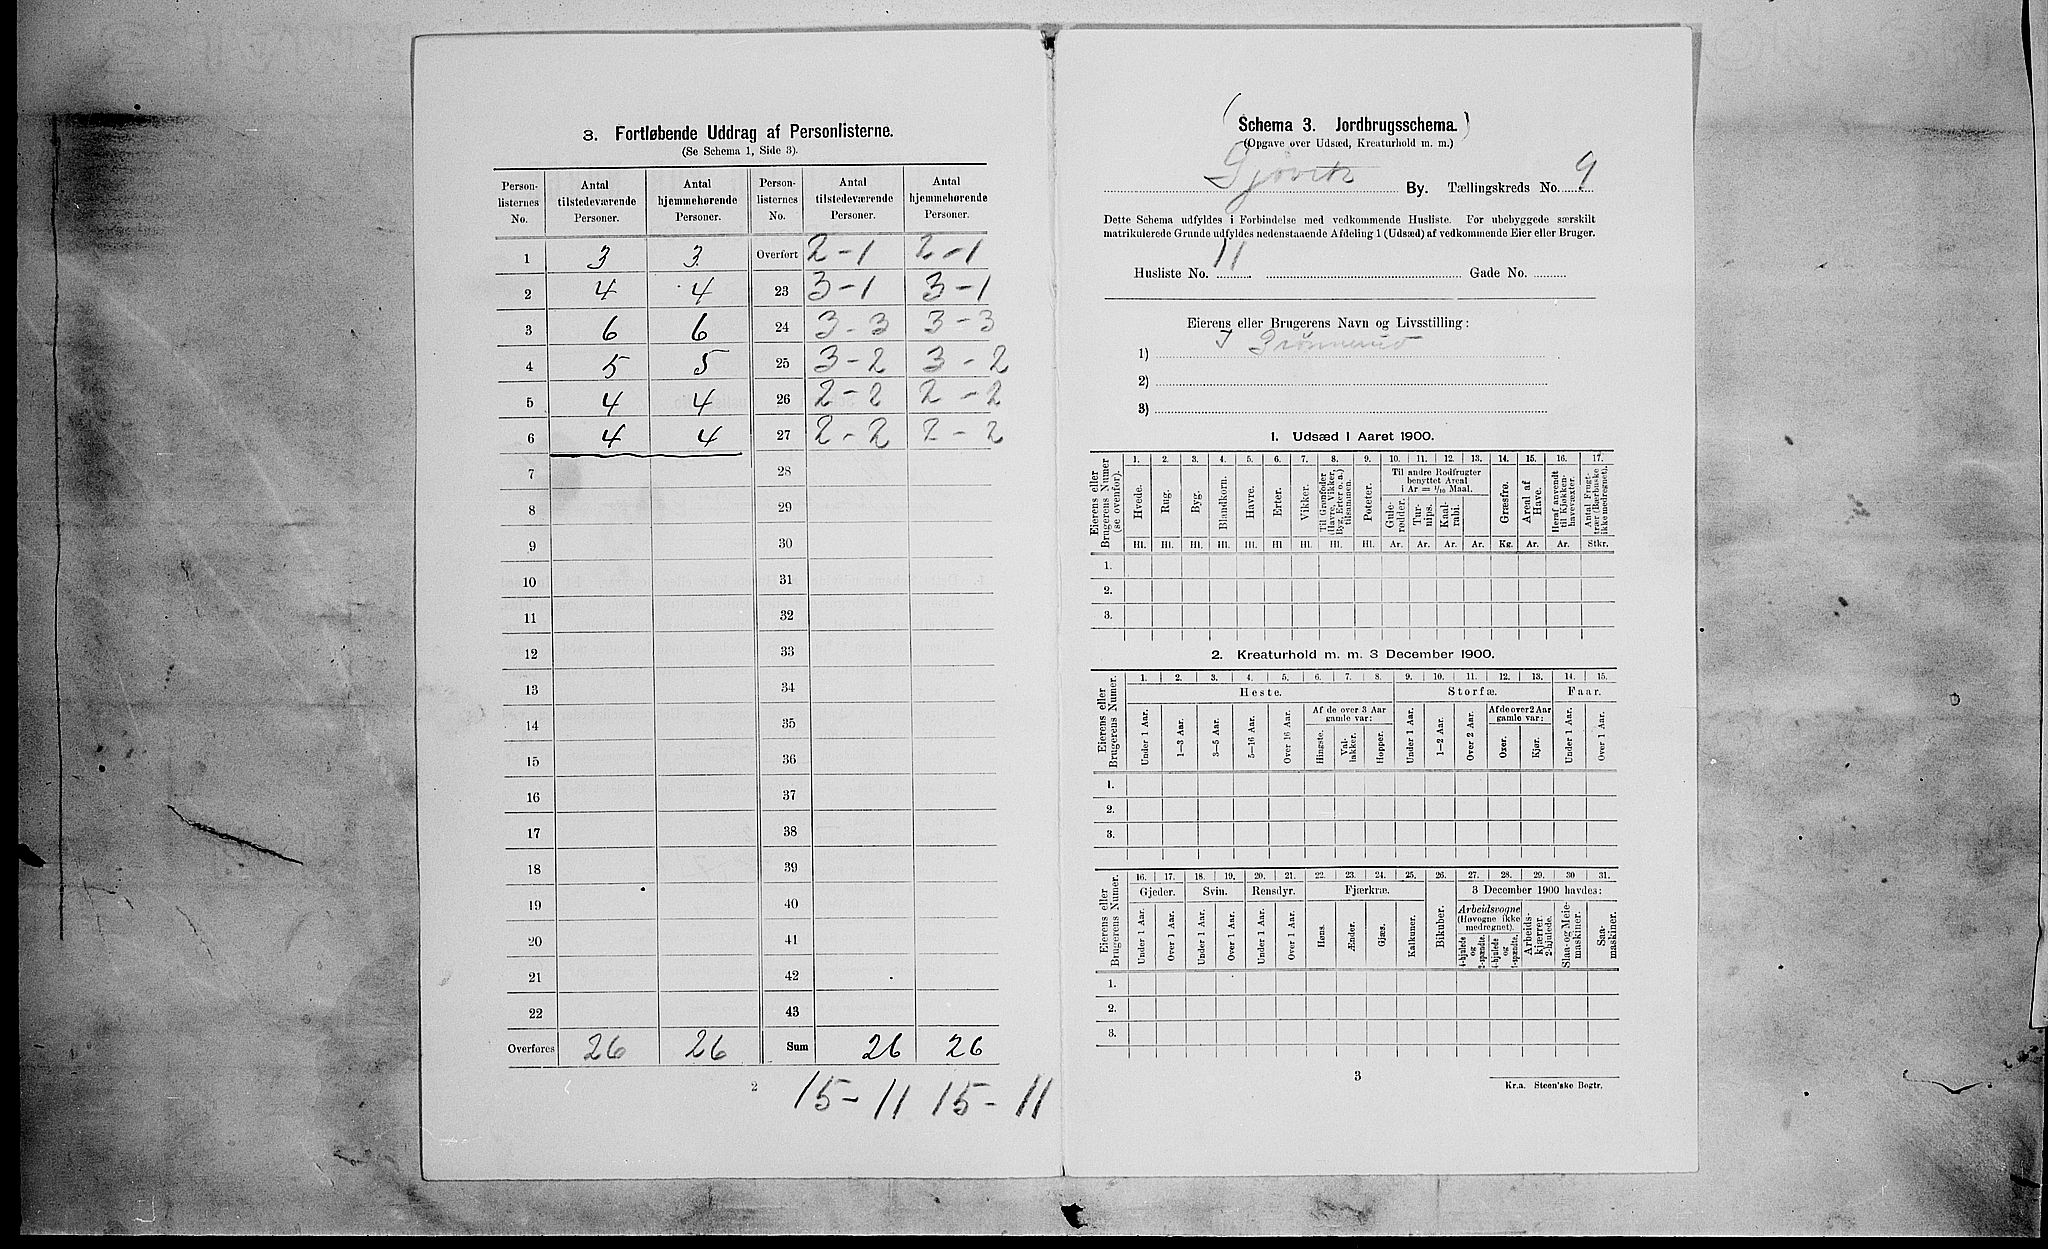 3. Fortløbende Uddrag af Personlisterne.
(Se Schema 1, Side 3).
Person-listernes No. | Antal tilstedeværende Personer. | Antal hjemmehørende Personer. | Person-listernes No. | Antal tilstedeværende Personer. | Antal hjemmehørende Personer.
1 3 3 Overført 2-1 2-1
2 4 4 23 3-1 3-1
3 6 6 24 3-3 3-3
4 5 5 25 3-2 3-2
5 4 4 26 2-2 2-2
6 4 4 27 2-2 2-2
7 28
8 29
9 30
10 31
11 32
12 33
13 34
14 35
15 36
16 37
17 38
18 39
19 40
20 41
21 42
22 43
Overføres 26 26 Sum 26 26
2 15-11 15-11
(Schema 3. Jordbrugsschema.)
(Opgave over Udsæd, Kreaturhold m. m.)
Gjøvik By. Tællingskreds No. 9
Dette Schema udfyldes i Forbindelse med vedkommende Husliste. For ubebyggede særskilt
matrikulerede Grunde udfyldes nedenstaaende Afdeling 1 (Udsæd) af vedkommende Eier eller Bruger.
Husliste No. 11 Gade No.
Eierens eller Brugerens Navn og Livsstilling:
1) Grønnerud
2)
3)
1. Udsæd i Aaret 1900.
Eierens eller Brugerens Numer (se ovenfor).
1. 2. 3. 4. 5. 6. 7. 8. 9. 10. 11. 12. 13. 14. 15. 16. 17.
Til andre Rodfrugter benyttet Areal i Ar = 1/10 Maal.
Hvede. Rug. Byg. Blandkorn. Havre. Erter. Vikker. Til Grønfoder (Havre, Vikker, Byg, Erter o. a.) tilsammen. Poteter. Gule-rødder. Tur-nips. Kaal-rabi. Græsfrø. Areal af Have. Heraf anvendt til Kjøkken-havevæxter. Antal Frugt-trær (Bærbuske ikke medregnet).
Hl. Hl. Hl. Hl. Hl. Hl. Hl. Hl. Hl. Ar. Ar. Ar. Ar. Kg. Ar. Ar. Stkr.
1.
2.
3.
2. Kreaturhold m. m. 3 December 1900.
Eierens eller Brugerens Numer.
1. 2. 3. 4. 5. 6. 7. 8. 9. 10. 11. 12. 13. 14. 15.
Heste. Storfæ. Faar.
Af de over 3 Aar gamle var: Af de over 2 Aar gamle var:
Under 1 Aar. 1—3 Aar. 3—5 Aar. 5—16 Aar. Over 16 Aar. Hingste. Val-lakker. Hopper. Under 1 Aar. 1—2 Aar. Over 2 Aar. Oxer. Kjør. Under 1 Aar. Over 1 Aar.
1.
2.
3.
Eierens eller Brugerens Numer.
16. 17. 18. 19. 20. 21. 22. 23. 24. 25. 26. 27. 28. 29. 30 31.
Gjeder. Svin. Rensdyr. Fjærkræ. 3 December 1900 havdes:
Arbeidsvogne (Høvogne ikke medregnet).
Under 1 Aar. Over 1 Aar. Under 1 Aar. Over 1 Aar. Under 1 Aar. Over 1 Aar. Høns. Ænder. Gjæs. Kalkuner. Bikuber. 4-hjulede og 2-spændte. 4-hjulede og 1-spændte. Arbeids-kjærrer 2-hjulede. Slaa- og Meie-maskiner. Saa-maskiner.
1.
2.
3.
3
Kr.a. Steen'ske Bogtr.